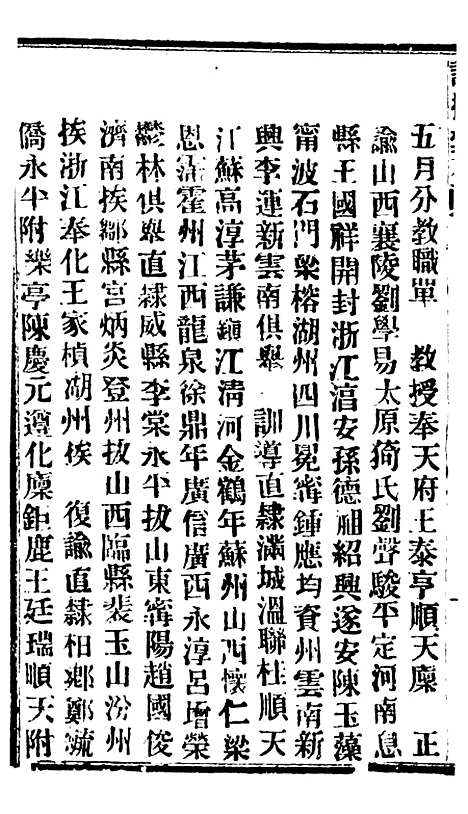 五月分教職單　教授奉天府王泰亨順天廩　正
諭山西襄陵劉學易太原猗氏劉聲駿平定河南息
縣王國祥開封浙江富安孫德祖紹興遂安陳玉藻
甯波石門梁榕湖州四川冕甯鍾應均資州雲南新
興李運新雲南俱舉　訓導直隸滿城溫聯桂順天
江蘇高淳茅謙鎮江淸河金鶴年蘇州山西懷仁梁
恩霖霍州江西龍泉徐鼎年廣信廣西永淳呂增榮
鬱林俱舉直隸威縣李棠永平拔山東甯陽趙國俊
濟南挨鄒縣宮炳炎登州拔山西臨縣裴玉山汾州
挨浙江奉化王家楨湖州挨　復諭直隸柏鄉鄭毓
僑永平附樂亭陳慶元遵化廩鉅鹿王廷瑞順天附